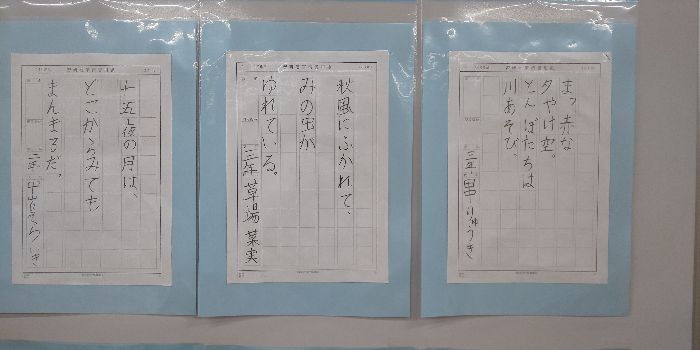 まっ赤な
夕やけ空。
とんぼたちは
川あそび。
三年 田中
秋風にふかれて、
みの虫が
ゆれている。
三年 草場 菜実
十五夜の月は、
どこからみても
まんまるだ。
三年